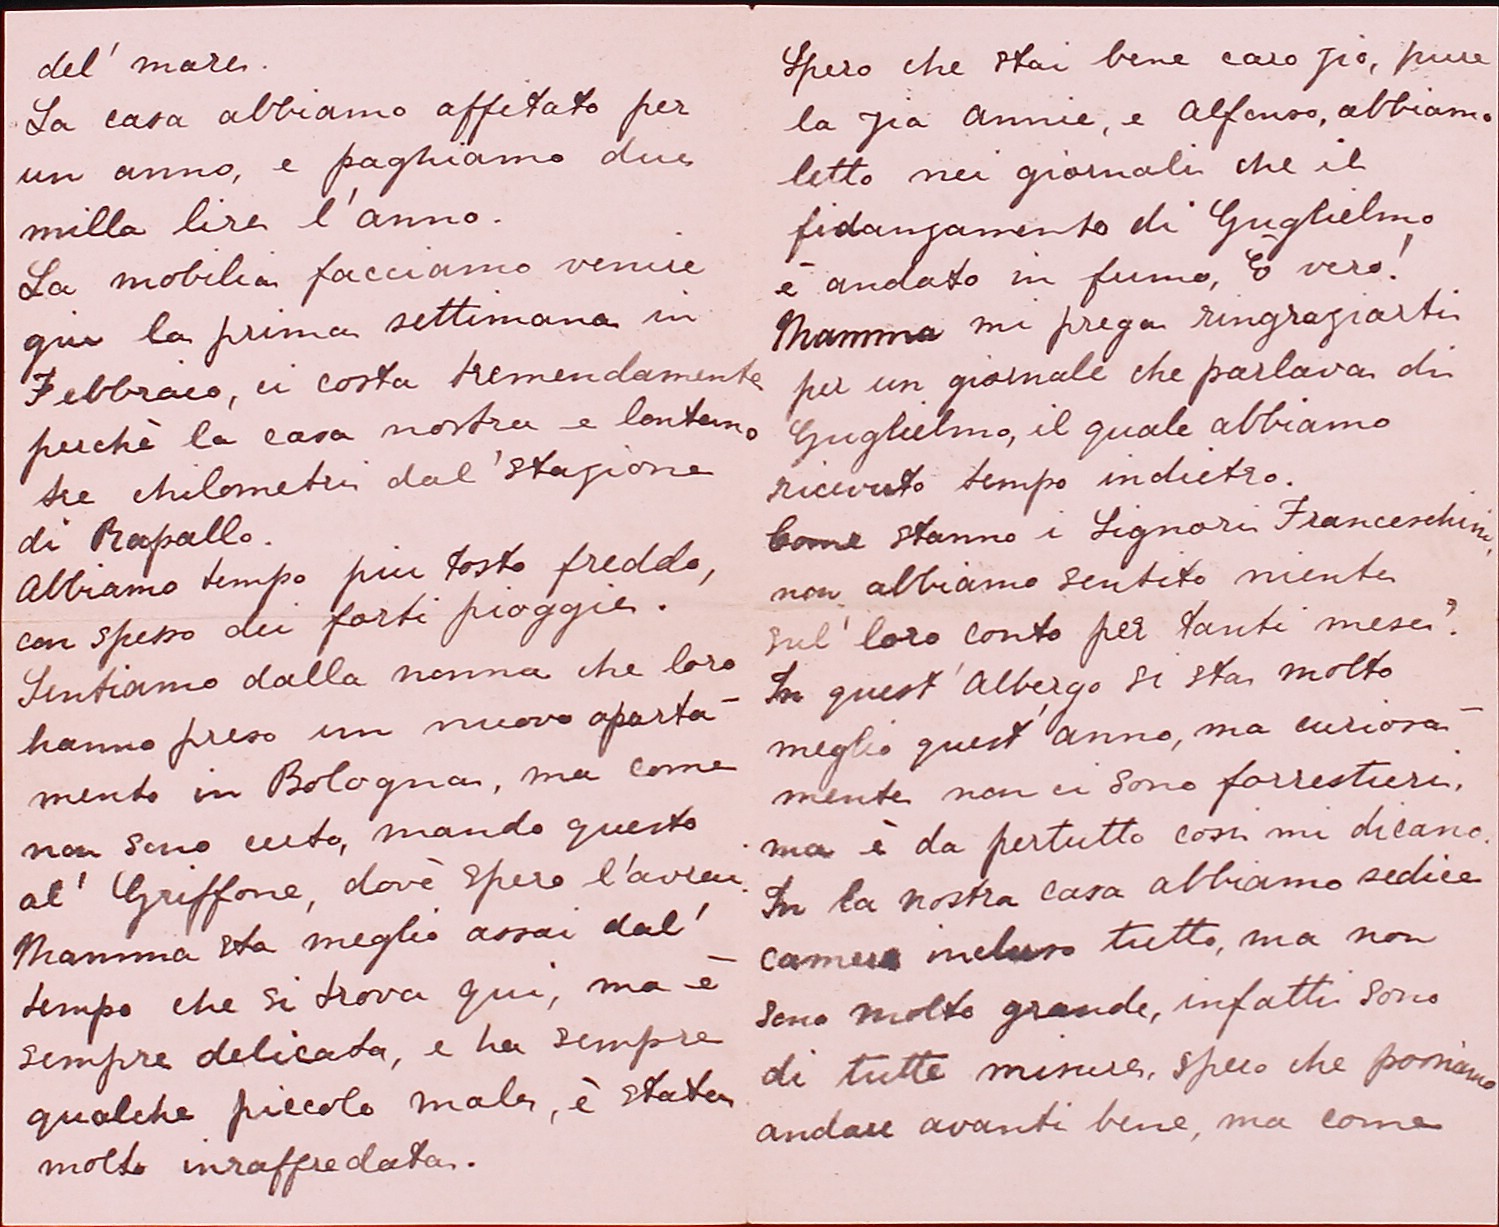 del' mare.
La casa abbiamo affitato per
un anno, e paghiamo due
milla lire l'anno.
La mobilia facciamo venire
giu la prima settimana in
Febbraio, ci costa tremendamente
perchè la casa nostra e lontano
tre chilometri dal' stazione
di Rapallo.
Abbiamo tempo piu tosto freddo,
con spesso dei forti pioggie.
Sentiamo dalla nonna che loro
hanno preso un nuovo aparta-
mento in Bologna, ma come
non sono certo, mando questo
al' Griffone, dovè spero l'avrai.
Mamma sta meglio assai dal'
tempo che si trova qui, ma è
sempre delicata, e ha sempre
qualche piccolo male, è stata
molto inraffredata.
Spero che stai bene caro zio, pure
la zia Annie, e Alfonso, abbiamo
letto nei giornali che il
fidanzamento di Guglielmo
è andato in fumo, È vero!
Mamma mi prega ringraziarti
per un giornale che parlava di
Guglielmo, il quale abbiamo
ricevuto tempo indietro.
Come stanno i Signori Franceschini,
non abbiamo sentito niente
sul' loro conto per tanti mesi?.
In quest' Albergo si sta molto
meglio quest' anno, ma curiosa-
mente non ci sono forrestieri,
ma è da pertutto cosi mi dicano.
In la nostra casa abbiamo sedice
camere incluso tutto, ma non
sono molto grande, infatti sono
di tutte misure, spero che possiamo
andare avanti bene, ma come